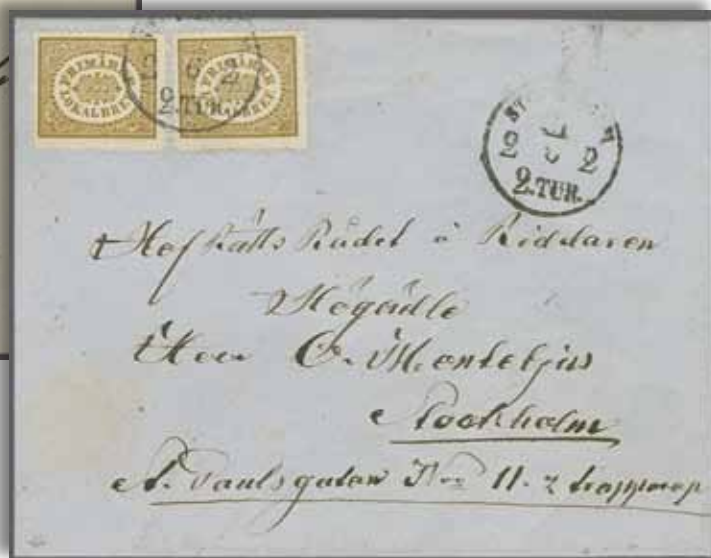 FRIMÄRKE
LOKALBREF
FRIMÄRKE
LOKALBREF
2 6 2
2.TUR.
2 6 2
2.TUR.
HofRätts Rådet å Riddaren
Högädle
Herr O. Montelius
Stockholm
St. Paulsgatan No 11. 2 trappor up